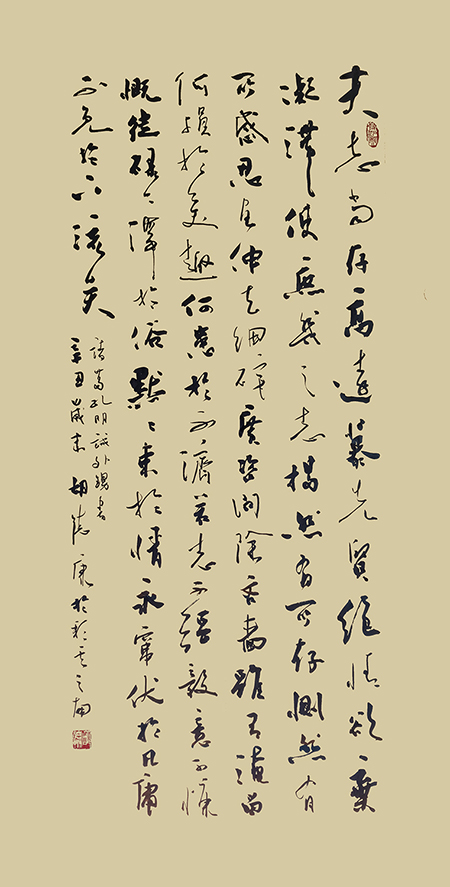 夫志當存高遠慕先賢絕情欲棄
凝滯使庶幾之志揭然有所存惻然有
所感忍屈伸去細碎廣咨問除吝嗇雖有淹留
何損於美趣何患於不濟若志不強毅意不慷
慨徒碌々滯於俗默々束於情永竄伏於凡庸
不免於下流矣
諸葛孔明誡外甥書
辛丑歲末胡於之南